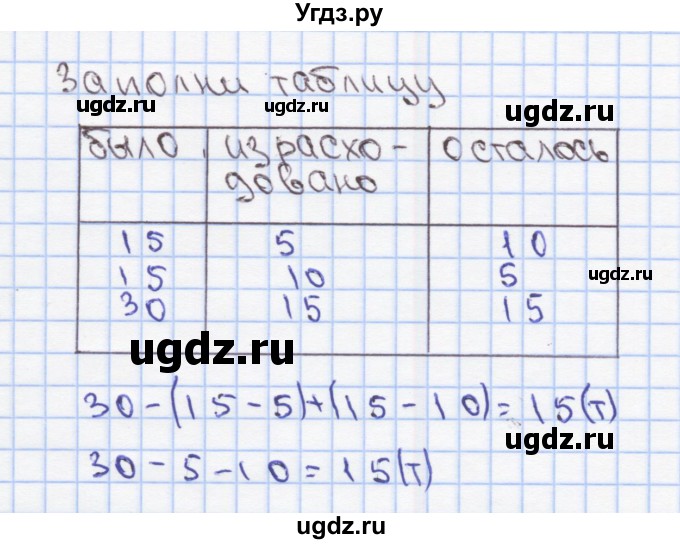 Угдз.ру
Заполни таблицу
ugdz.ru ugdz.ru ugdz.ru
было израсхо- осталось
довано
15 5 10
15 10 5
ugdz.ru
30 15 15
ugdz.ru
30-(15-5)+(15-10)=15(т)
30-5-10=15(т)
ugdz.ru